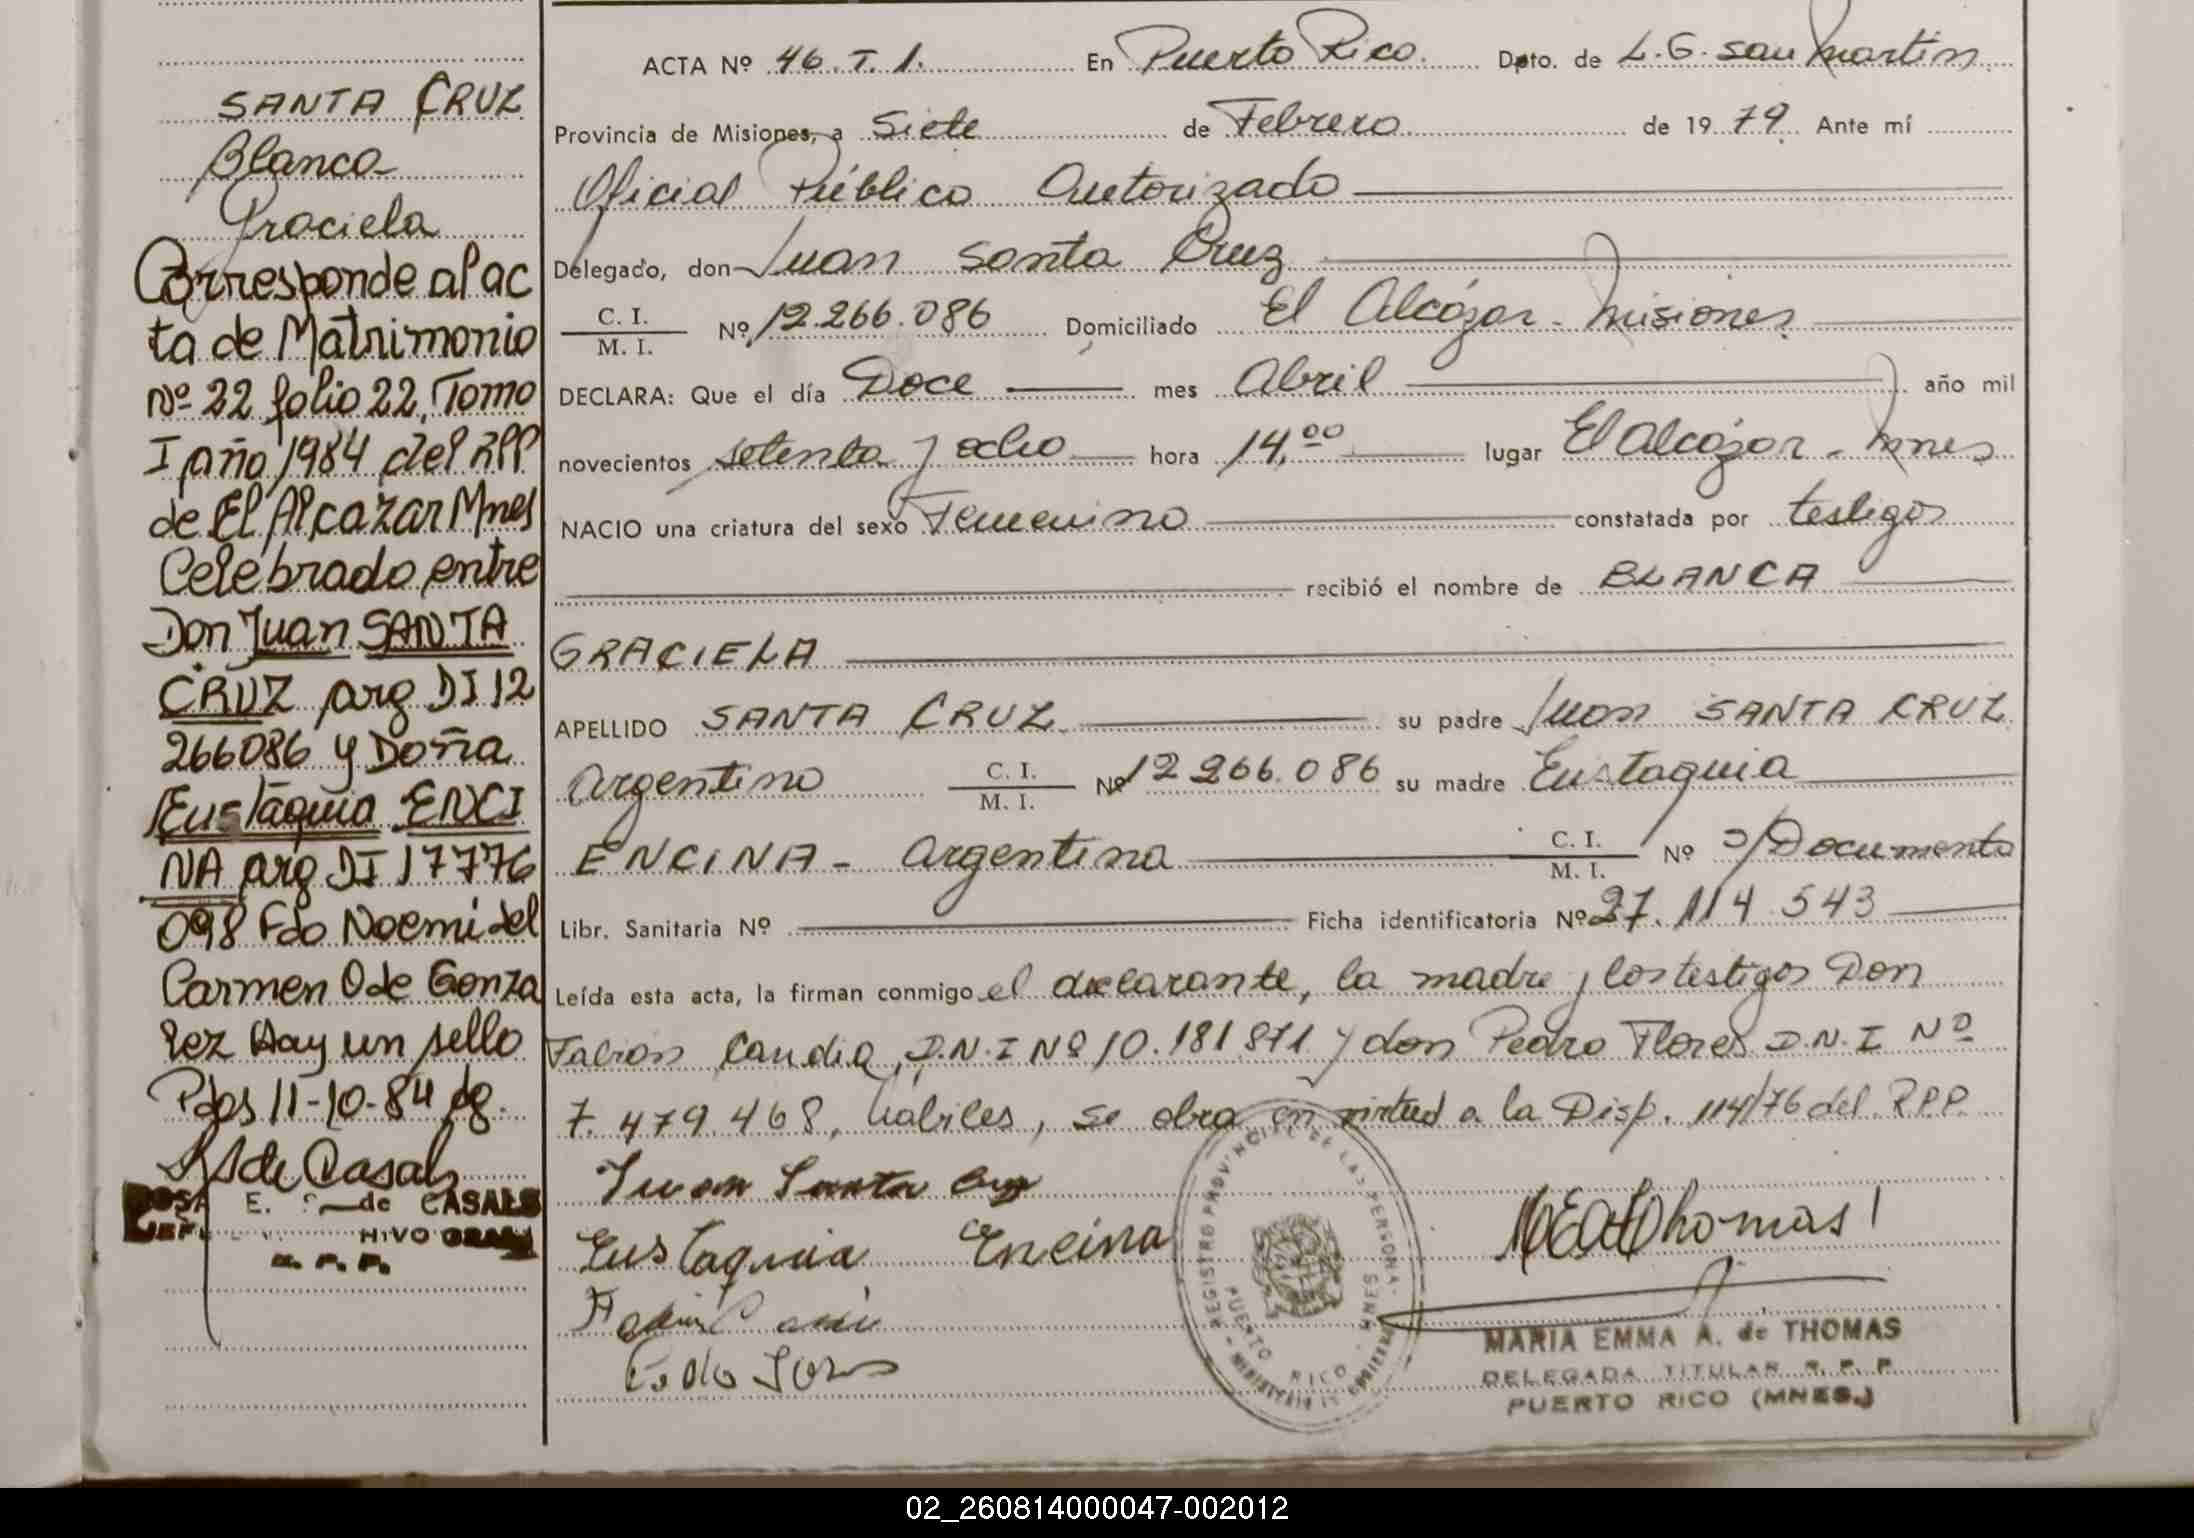 SANTA CRUZ
Blanca
Graciela
Corresponde al ac
ta de Matrimonio
Nº 22 folio 22, Tomo
I año 1984 del RPP
de El Alcazar Mnes
Celebrado entre
Don Juan SANTA
CRUZ arg DI 12
266086 y Doña
Eustaquia ENCI
NA arg DI 17776
098 Fdo Noemi del
Carmen O de Gonza
lez Hay un sello
Pdas 11-10-84 dg.
de Casals
ROSA E. de CASALS
JEFE HIVO GRAL
R. P. P.
ACTA Nº 46. T. 1. En Puerto Rico. Dpto. de L. G. San Martin
Provincia de Misiones, a Siete de Febrero de 1979. Ante mí
Oficial Público Autorizado
Delegado, don Juan Santa Cruz
C. I.
M. I. Nº 12.266.086 Domiciliado El Alcázar - Misiones
DECLARA: Que el día Doce mes Abril año mil
novecientos setenta y ocho hora 14,00 lugar El Alcázar - Mnes
NACIO una criatura del sexo Femenino constatada por testigos
recibió el nombre de BLANCA
GRACIELA
APELLIDO SANTA CRUZ su padre Juan SANTA CRUZ
Argentino C. I.
M. I. Nº 12 266.086 su madre Eustaquia
ENCINA - Argentina C. I.
M. I. Nº s/Documento
Libr. Sanitaria Nº Ficha identificatoria Nº 27.114.543
Leída esta acta, la firman conmigo el declarante, la madre y los testigos Don
Fabian Candia, D.N.I Nº 10.181.871 y don Pedro Flores D.N.I Nº
7.479.468, hábiles, se obra en virtud a la Disp. 114/76 del R.P.P.
Juan Santa Cruz
Eustaquia Encina
REGISTRO PROVINCIAL DE LAS PERSONAS
PUERTO RICO - MNES
MINISTERIO DE GOBIERNO
MEAdeThomas
MARIA EMMA A. de THOMAS
DELEGADA TITULAR R. P. P.
PUERTO RICO (MNES.)
02_260814000047-002012